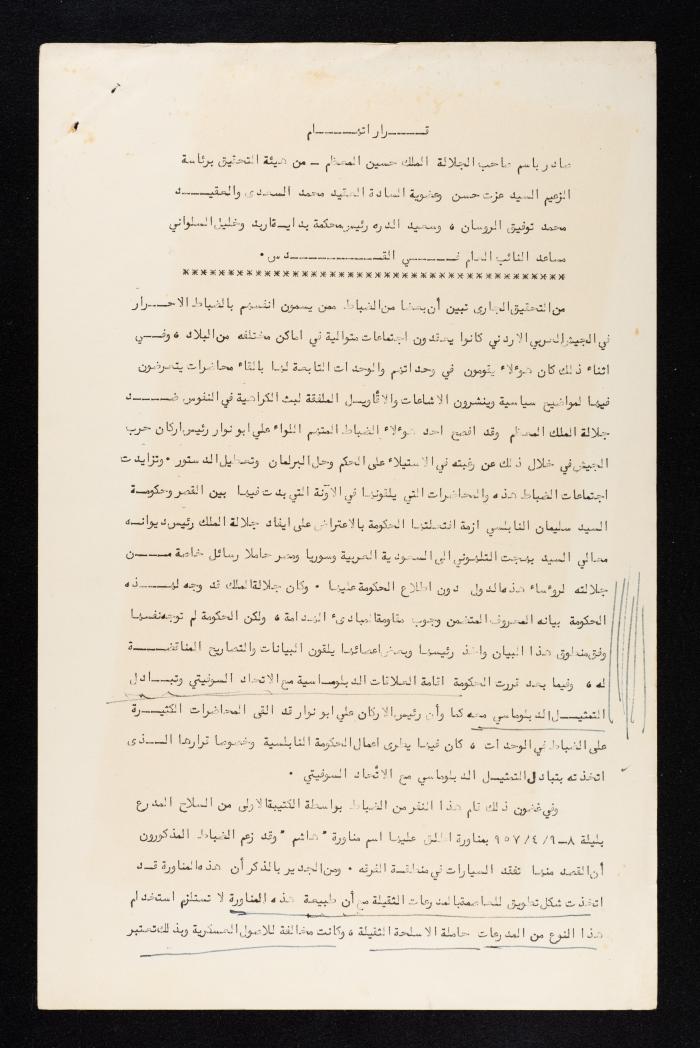 قـــــرار اتهـــــام
صادر باسم صاحب الجلالة الملك حسين المعظم ــ من هيئة التحقيق برئاسة
الزعيم السيد عزت حسن وعضوية السادة العقيد محمد السعدى والعقيــــد
محمد توفيق الروسان ، وسعيد الدره رئيس محكمة بداية اربد وخليل السلواني
مساعد النائب العام فــــي القــــــــدس .
************************************************
من التحقيق الجارى تبين أن بعضا من الضباط ممن يسمون انفسهم بالضباط الاحــرار
في الجيش العربي الاردني كانوا يعقدون اجتماعات متوالية في اماكن مختلفه من البلاد ، وفــي
اثناء ذلك كان هوءلاء يقومون في وحداتهم والوحدات التابعة لها بالقاء محاضرات يتعرضون
فيها لمواضيع سياسية وينشرون الاشاعات والاقاويل الملفقة لبث الكراهية في النفوس ضـــد
جلالة الملك المعظم وقد افصح احد هوءلاء الضباط المتهم اللواء علي ابو نوار رئيس اركان حرب
الجيش في خلال ذلك عن رغبته في الاستيلاء على الحكم وحل البرلمان وتعطيل الدستور . وتزايدت
اجتماعات الضباط هذه والمحاضرات التي يلقونها في الآونة التي بدت فيها بين القصر وحكومة
السيد سليمان النابلسي ازمة افتعلتها الحكومة بالاعتراض على ايفاد جلالة الملك رئيس ديوانه
معالي السيد بهجت التلهوني الى السعودية العربية وسوريا ومصر حاملا رسائل خاصة مــن
جلالته لروءساء هذه الدول دون اطلاع الحكومة عليها . وكان جلالة الملك قد وجه لهــذه
الحكومة بيانه المعروف المتضمن وجوب مقاومة المبادىء الهدامة ، ولكن الحكومة لم توجه نفسها
وفق منطوق هذا البيان واخذ رئيسها وبعض اعضائها يلقون البيانات والتصاريح المناقضـــة
له ، وفيما بعد قررت الحكومة اقامة العلاقات الدبلوماسية مع الاتحاد السوفيتي وتبــادل
التمثيــل الدبلوماسي معه كما وأن رئيس الاركان علي ابو نوار قد القى المحاضرات الكثيــرة
على الضباط في الوحدات ، كان فيها يطرى اعمال الحكومة النابلسية وخصوصا قرارها الــذى
اتخذته بتبادل التمثيــل الدبلوماسي مع الاتحاد السوفيتي .
وفي غضون ذلك قام هذا النفر من الضباط بواسطة الكتيبة الاولى من السلاح المدرع
بليلة ٨ــ٩/٤/٩٥٧ بمناورة اطلق عليها اسم مناورة " هاشم " وقد زعم الضباط المذكورون
أن القصد منها تفقد السيارات في منطقة الفرقه . ومن الجدير بالذكر أن هذه المناورة قــد
اتخذت شكل تطويق للعاصمة بالمدرعات الثقيلة مع أن طبيعة هذه المناورة لا تستلزم استخدام
هذا النوع من المدرعات حاملة الاسلحة الثقيلة ، وكانت مخالفة للاصول العسكرية وبذلك تعتبر